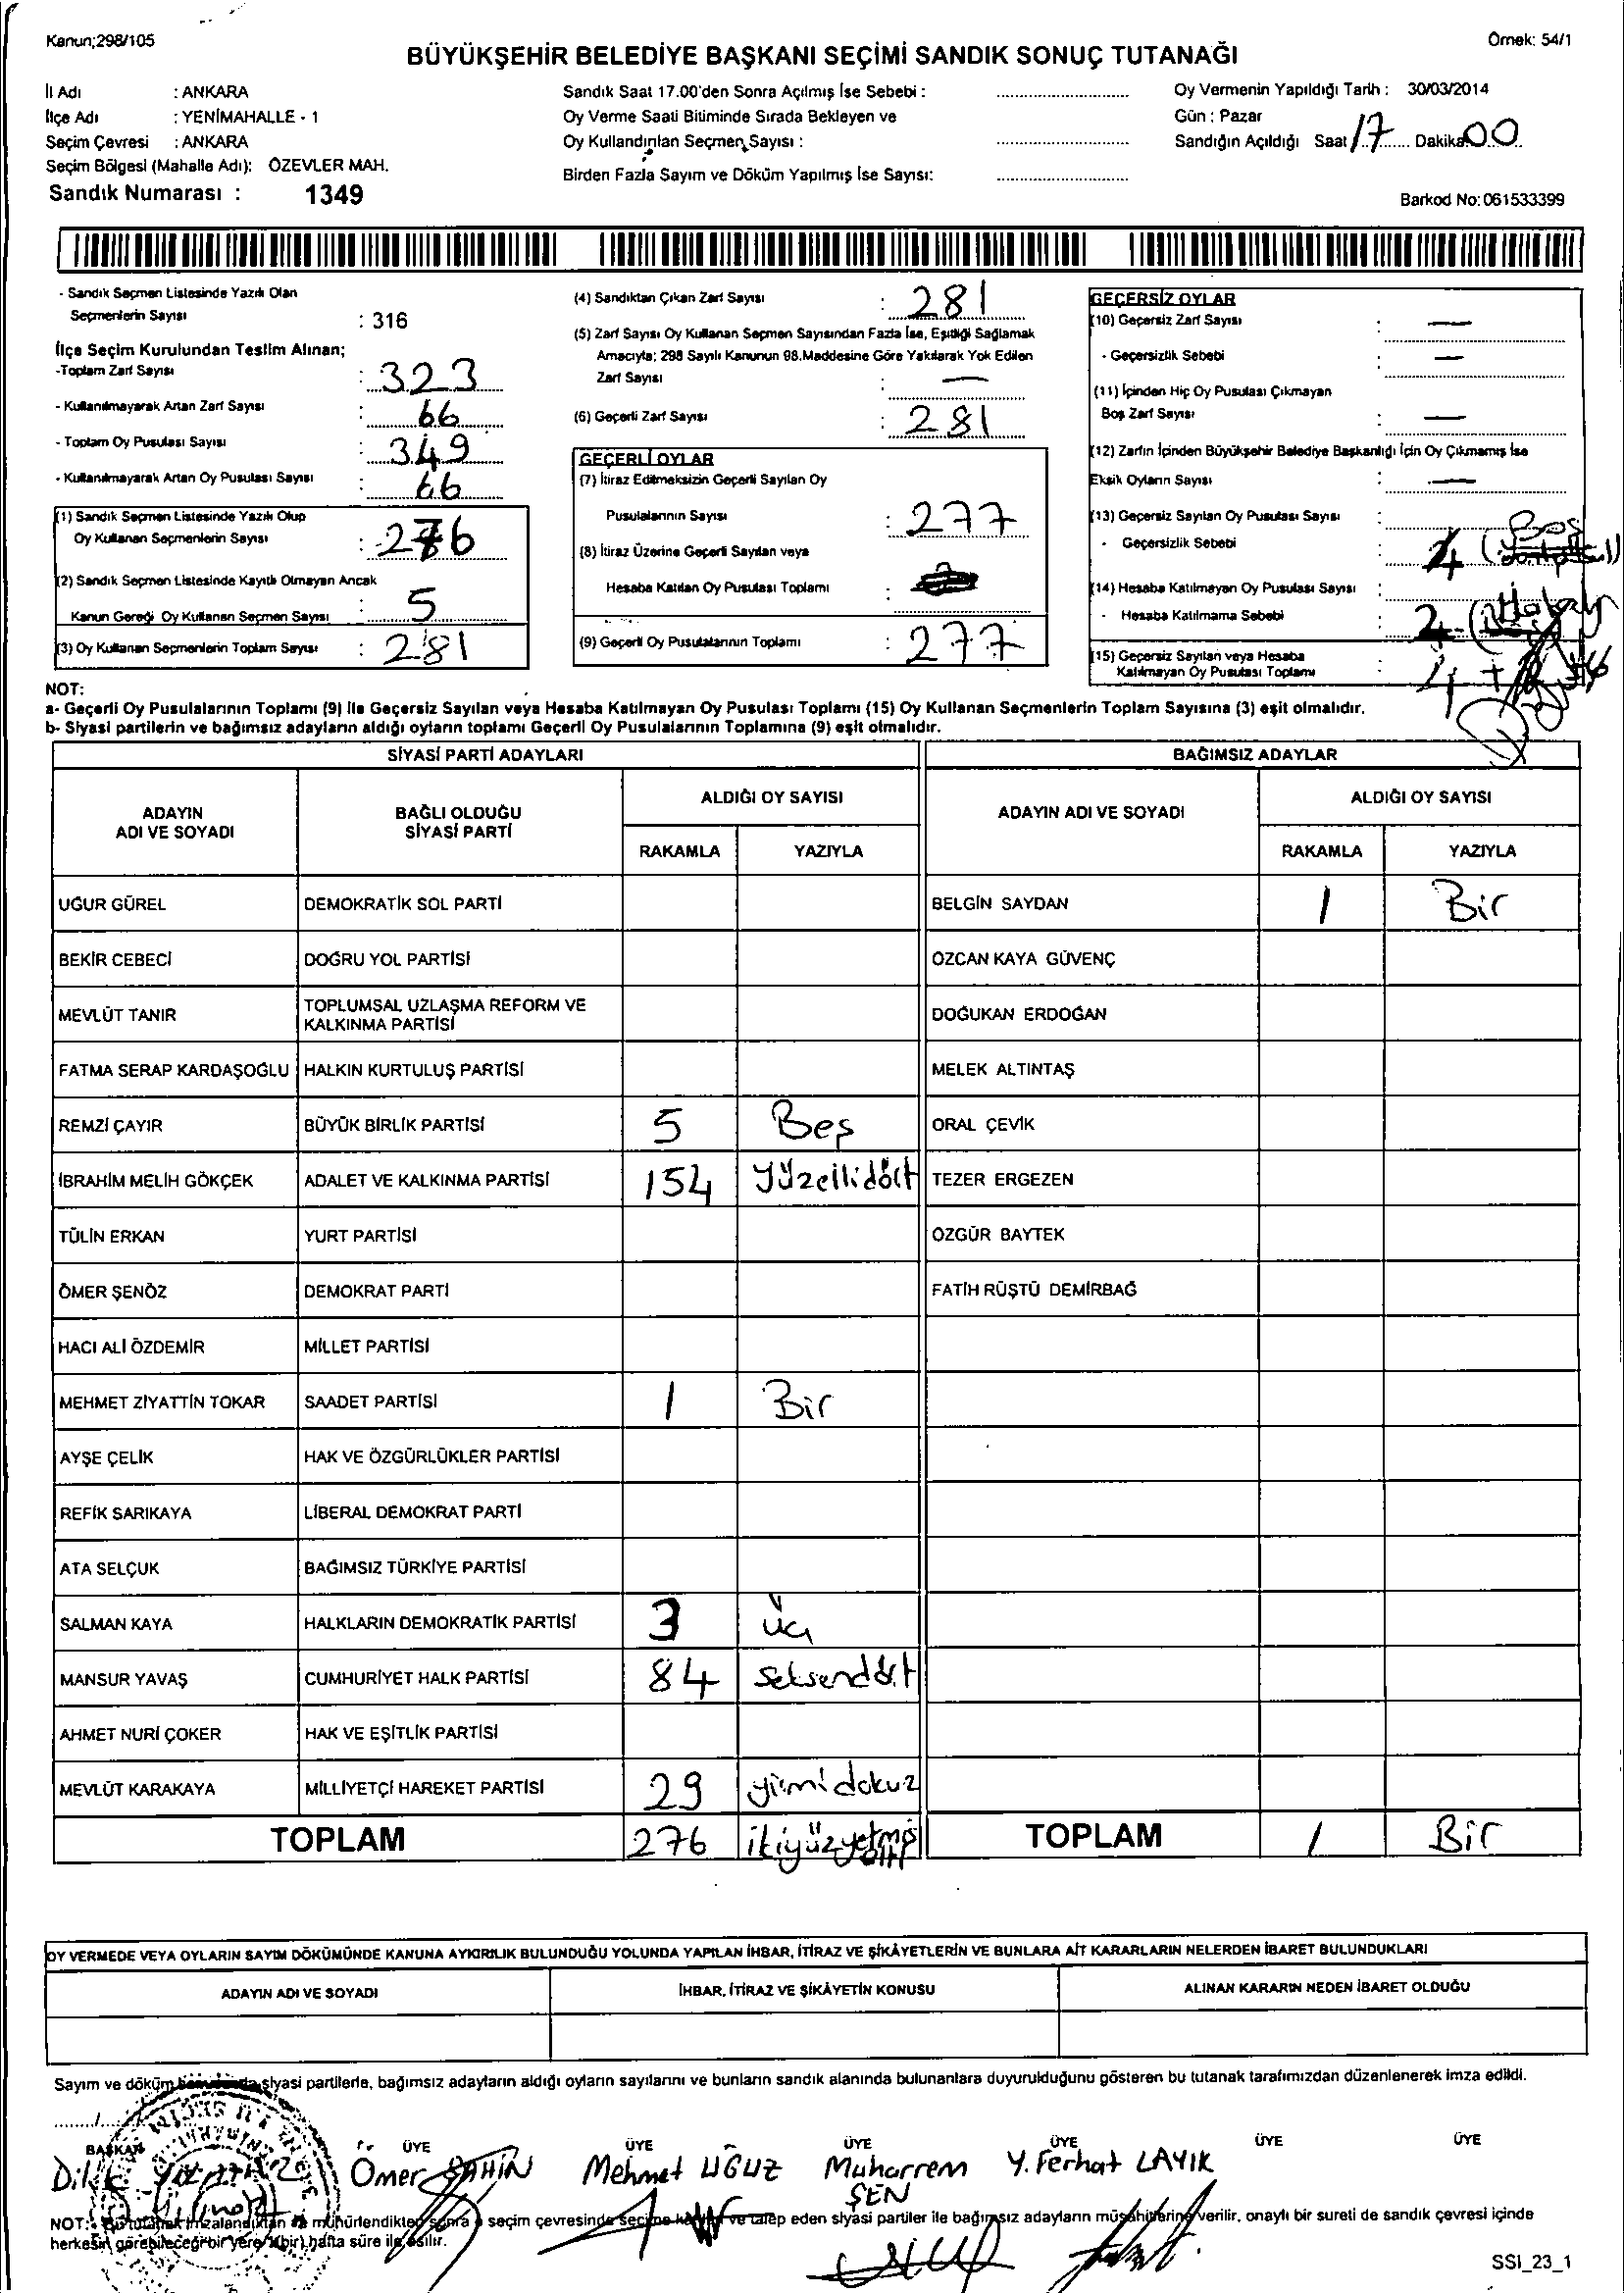 Kanun;298/105
Örnek: 54/1
BÜYÜKŞEHİR BELEDİYE BAŞKANI SEÇİMİ SANDIK SONUÇ TUTANAĞI
İl Adı : ANKARA
İlçe Adı : YENİMAHALLE - 1
Seçim Çevresi : ANKARA
Seçim Bölgesi (Mahalle Adı): ÖZEVLER MAH.
Sandık Numarası : 1349
Sandık Saat 17.00'den Sonra Açılmış İse Sebebi :
Oy Verme Saati Bitiminde Sırada Bekleyen ve
Oy Kullandırılan Seçmen Sayısı :
Birden Fazla Sayım ve Döküm Yapılmış İse Sayısı:
Oy Vermenin Yapıldığı Tarih : 30/03/2014
Gün : Pazar
Sandığın Açıldığı Saat 17 Dakika 00
Barkod No: 061533399
- Sandık Seçmen Listesinde Yazılı Olan
Seçmenlerin Sayısı : 316
İlçe Seçim Kurulundan Teslim Alınan;
-Toplam Zarf Sayısı : 323
- Kullanılmayarak Artan Zarf Sayısı : 66
- Toplam Oy Pusulası Sayısı : 349
- Kullanılmayarak Artan Oy Pusulası Sayısı : 66
(1) Sandık Seçmen Listesinde Yazılı Olup
Oy Kullanan Seçmenlerin Sayısı : 276
(2) Sandık Seçmen Listesinde Kayıtlı Olmayan Ancak
Kanun Gereği Oy Kullanan Seçmen Sayısı : 5
(3) Oy Kullanan Seçmenlerin Toplam Sayısı : 281
(4) Sandıktan Çıkan Zarf Sayısı : 281
(5) Zarf Sayısı Oy Kullanan Seçmen Sayısından Fazla İse, Eşitliği Sağlamak
Amacıyla; 298 Sayılı Kanunun 98.Maddesine Göre Yakılarak Yok Edilen
Zarf Sayısı : —
(6) Geçerli Zarf Sayısı : 281
GEÇERLİ OYLAR
(7) İtiraz Edilmeksizin Geçerli Sayılan Oy
Pusulalarının Sayısı : 277
(8) İtiraz Üzerine Geçerli Sayılan veya
Hesaba Katılan Oy Pusulası Toplamı :
(9) Geçerli Oy Pusulalarının Toplamı : 277
GEÇERSİZ OYLAR
(10) Geçersiz Zarf Sayısı : —
- Geçersizlik Sebebi : —
(11) İçinden Hiç Oy Pusulası Çıkmayan
Boş Zarf Sayısı : —
(12) Zarfın İçinden Büyükşehir Belediye Başkanlığı İçin Oy Çıkmamış İse
Eksik Oyların Sayısı : —
(13) Geçersiz Sayılan Oy Pusulası Sayısı :
- Geçersizlik Sebebi : 4 (Boş
(14) Hesaba Katılmayan Oy Pusulası Sayısı :
- Hesaba Katılmama Sebebi :
(15) Geçersiz Sayılan veya Hesaba
Katılmayan Oy Pusulası Toplamı : 4
NOT:
a- Geçerli Oy Pusulalarının Toplamı (9) ile Geçersiz Sayılan veya Hesaba Katılmayan Oy Pusulası Toplamı (15) Oy Kullanan Seçmenlerin Toplam Sayısına (3) eşit olmalıdır.
b- Siyasi partilerin ve bağımsız adayların aldığı oyların toplamı Geçerli Oy Pusulalarının Toplamına (9) eşit olmalıdır.
SİYASİ PARTİ ADAYLARI BAĞIMSIZ ADAYLAR
ADAYIN ADI VE SOYADI BAĞLI OLDUĞU SİYASİ PARTİ ALDIĞI OY SAYISI ADAYIN ADI VE SOYADI ALDIĞI OY SAYISI
RAKAMLA YAZIYLA RAKAMLA YAZIYLA
UĞUR GÜREL DEMOKRATİK SOL PARTİ BELGİN SAYDAN 1 Bir
BEKİR CEBECİ DOĞRU YOL PARTİSİ ÖZCAN KAYA GÜVENÇ
MEVLÜT TANIR TOPLUMSAL UZLAŞMA REFORM VE KALKINMA PARTİSİ DOĞUKAN ERDOĞAN
FATMA SERAP KARDAŞOĞLU HALKIN KURTULUŞ PARTİSİ MELEK ALTINTAŞ
REMZİ ÇAYIR BÜYÜK BİRLİK PARTİSİ 5 Beş ORAL ÇEVİK
İBRAHİM MELİH GÖKÇEK ADALET VE KALKINMA PARTİSİ 154 Yüzellidört TEZER ERGEZEN
TÜLİN ERKAN YURT PARTİSİ ÖZGÜR BAYTEK
ÖMER ŞENÖZ DEMOKRAT PARTİ FATİH RÜŞTÜ DEMİRBAĞ
HACI ALİ ÖZDEMİR MİLLET PARTİSİ
MEHMET ZİYATTİN TOKAR SAADET PARTİSİ 1 Bir
AYŞE ÇELİK HAK VE ÖZGÜRLÜKLER PARTİSİ
REFİK SARIKAYA LİBERAL DEMOKRAT PARTİ
ATA SELÇUK BAĞIMSIZ TÜRKİYE PARTİSİ
SALMAN KAYA HALKLARIN DEMOKRATİK PARTİSİ 3 üç
MANSUR YAVAŞ CUMHURİYET HALK PARTİSİ 84 Seksendört
AHMET NURİ ÇOKER HAK VE EŞİTLİK PARTİSİ
MEVLÜT KARAKAYA MİLLİYETÇİ HAREKET PARTİSİ 29 yirmidokuz
TOPLAM 276 ikiyüzyetmişaltı TOPLAM 1 Bir
OY VERMEDE VEYA OYLARIN SAYIM DÖKÜMÜNDE KANUNA AYKIRILIK BULUNDUĞU YOLUNDA YAPILAN İHBAR, İTİRAZ VE ŞİKÂYETLERİN VE BUNLARA AİT KARARLARIN NELERDEN İBARET BULUNDUKLARI
ADAYIN ADI VE SOYADI İHBAR, İTİRAZ VE ŞİKÂYETİN KONUSU ALINAN KARARIN NEDEN İBARET OLDUĞU
Sayım ve döküm siyasi partilerle, bağımsız adayların aldığı oyların sayılarını ve bunların sandık alanında bulunanlara duyurulduğunu gösteren bu tutanak tarafımızdan düzenlenerek imza edildi.
BAŞKAN ÜYE ÜYE ÜYE ÜYE ÜYE ÜYE
Ömer ŞAHİN Mehmet UĞUZ Muharrem ŞEN Y. Ferhat LAYIK
NOT: Bu tutanak imzalandıktan ve mühürlendikten sonra seçim çevresinde seçime ve talep eden siyasi partiler ile bağımsız adayların müşahitlerine verilir, onaylı bir sureti de sandık çevresi içinde
herkesin görebileceği bir yere (bir) hafta süre ile asılır.
SSI_23_1